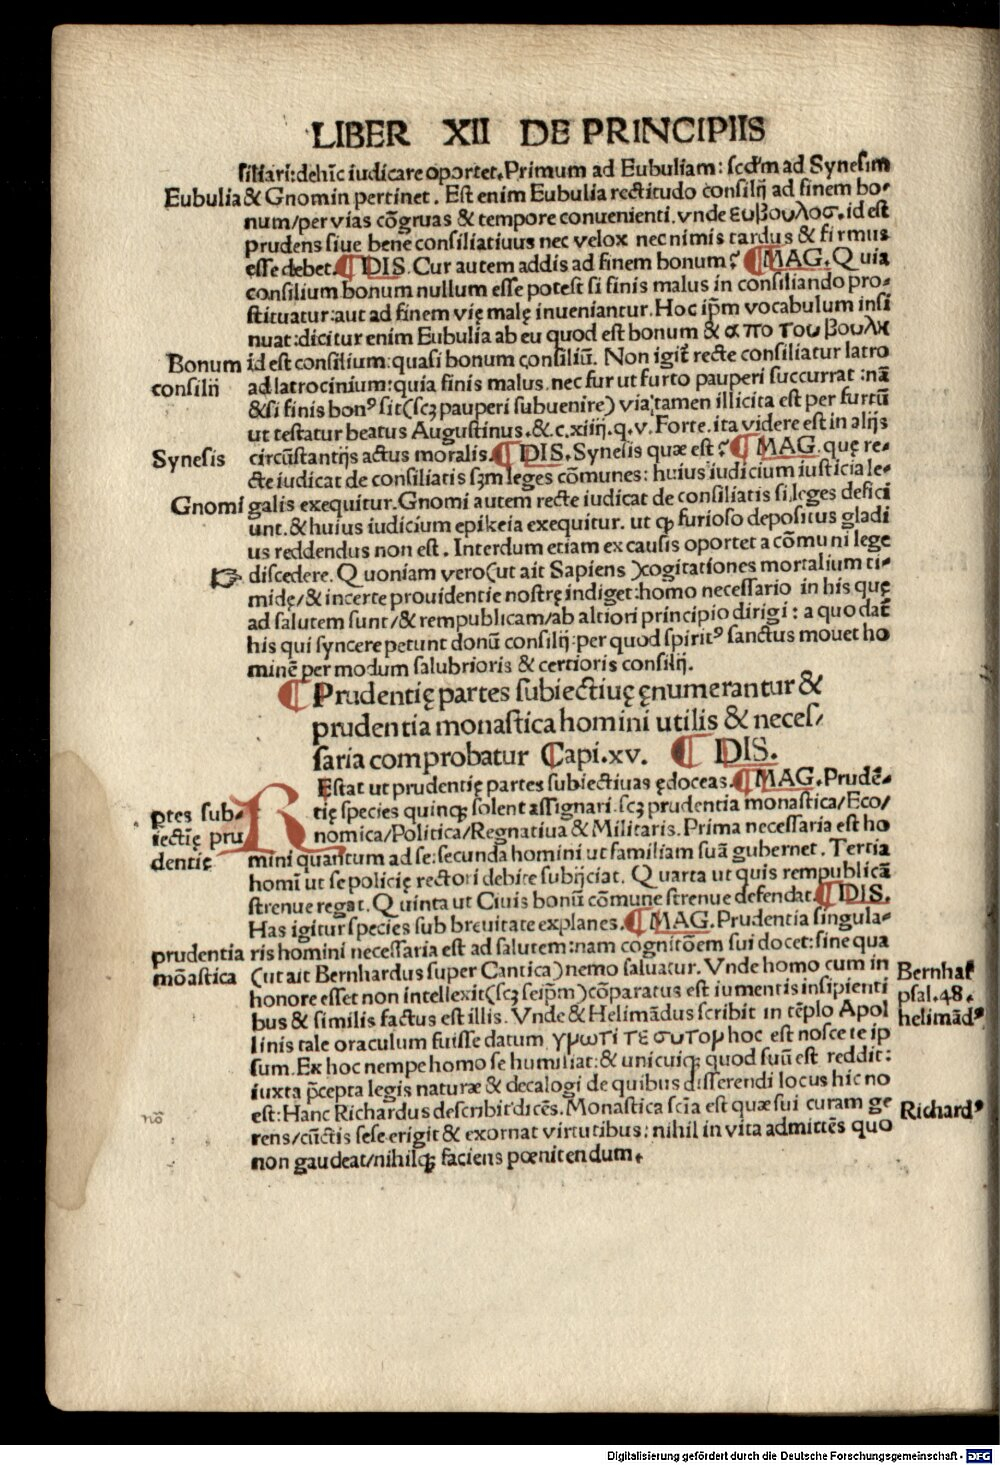 LIBER XII DE PRINCIPIIS
siliari: dehīc iudicare oportet. Primum ad Eubuliam: scďm ad Synesim
Eubulia & Gnomin pertinet. Est enim Eubulia rectitudo consilij ad finem bo-
num/per vias cōgruas & tempore conuenienti. vnde ευβουλοσ. id est
prudens siue bene consiliatiuus nec velox nec nimis tardus & firmus
esse debet. ¶ DIS. Cur autem addis ad finem bonum? ¶ MAG. Quia
consilium bonum nullum esse potest si finis malus in consiliando pro-
stituatur: aut ad finem vię malę inueniantur. Hoc ip̄m vocabulum insi
nuat: dicitur enim Eubulia ab eu quod est bonum & απο του βουλη
Bonum id est consilium: quasi bonum consiliū. Non igit̄ recte consiliatur latro
consilij ad latrocinium: quia finis malus. nec fur ut furto pauperi succurrat: nā
& si finis bonꝰ sit (scꝫ pauperi subuenire) via tamen illicita est per furtū
ut testatur beatus Augustinus. &. c. xiiij. q. v. Forte. ita videre est in alijs
Synesis circūstantijs actus moralis. ¶ DIS. Synesis quæ est? ¶ MAG. quę re-
cte iudicat de consiliatis sꝫm leges cōmunes: huius iudicium iusticia le-
Gnomi galis exequitur. Gnomi autem recte iudicat de consiliatis si leges defici
unt. & huius iudicium epikeia exequitur. ut ꝙ furioso depositus gladi
us reddendus non est. Interdum etiam ex causis oportet a cōmuni lege
☞ discedere. Quoniam vero (ut ait Sapiens) cogitationes mortalium ti-
midę/& incerte prouidentie nostrę indiget: homo necessario in his quę
ad salutem sunt/& rempublicam/ab altiori principio dirigi: a quo dat̄
his qui syncere petunt donū consilij: per quod spiritꝰ sanctus mouet ho
minē per modum salubrioris & certioris consilij.
¶ Prudentię partes subiectiuę ęnumerantur &
prudentia monastica homini utilis & neces/
saria comprobatur Capi. xv. ¶ DIS.
REstat ut prudentię partes subiectiuas ędoceas. ¶ MAG. Prudē-
ptes sub- tię species quinqꝫ solent assignari. scꝫ prudentia monastica/Eco/
iectię pru nomica/Politica/Regnatiua & Militaris. Prima necessaria est ho
dentię mini quantum ad se: secunda homini ut familiam suā gubernet. Tertia
homī ut se policię rectori debite subijciat. Quarta ut quis rempublicā
strenue regat. Quinta ut Ciuis bonū cōmune strenue defendat. ¶ DIS.
Has igitur species sub breuitate explanes. ¶ MAG. Prudentia singula-
prudentia ris homini necessaria est ad salutem: nam cognitōem sui docet: sine qua
mōastica (ut ait Bernhardus super Cantica) nemo saluatur. Vnde homo cum in Bernhar̄
honore esset non intellexit (scꝫ seip̄m) cōparatus est iumentis insipienti psal. 48.
bus & similis factus est illis. Vnde & Helimādus scribit in tēplo Apol helimādꝰ
linis tale oraculum fuisse datum γμωτι τε σωτομ hoc est nosce te ip
sum. Ex hoc nempe homo se humiliat: & unicuiqꝫ quod suū est reddit:
iuxta p̄cepta legis naturæ & decalogi de quibus disserendi locus hic no
nō est: Hanc Richardus describit dicēs. Monastica scīa est quæ sui curam ge Richardꝰ
rens/cūctis sese erigit & exornat virtutibus: nihil in vita admittēs quo
non gaudeat/nihilqꝫ faciens pœnitendum.
Digitalisierung gefördert durch die Deutsche Forschungsgemeinschaft - DFG